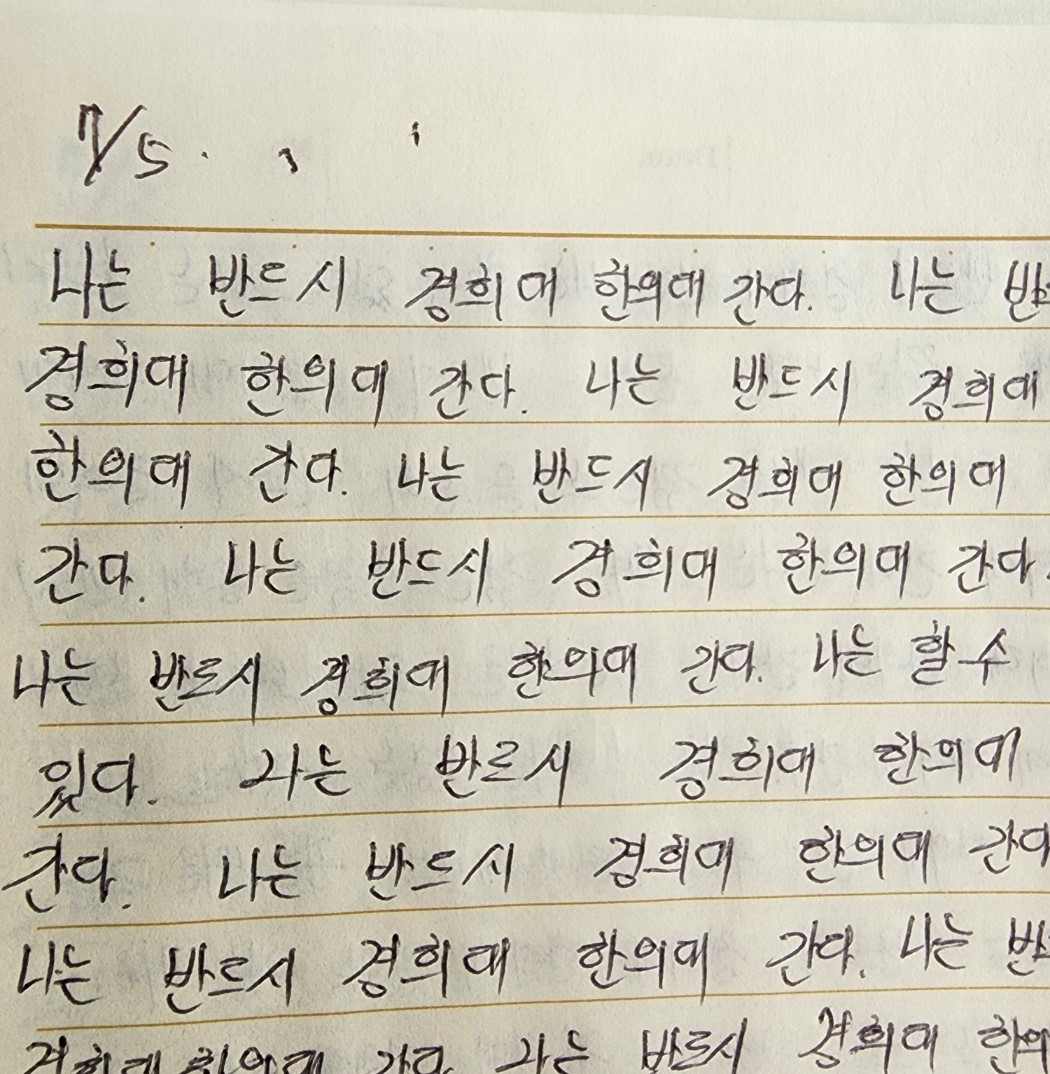 7/5.
나는 반드시 경희대 한의대 간다. 나는
경희대 한의대 간다. 나는 반드시 경희대
한의대 간다. 나는 반드시 경희대 한의대
간다. 나는 반드시 경희대 한의대 간다.
나는 반드시 경희대 한의대 간다. 나는 할 수
있다. 나는 반드시 경희대 한의대
간다. 나는 반드시 경희대 한의대 간다
나는 반드시 경희대 한의대 간다. 나는
경희대 한의대 간다. 나는 반드시 경희대 한의